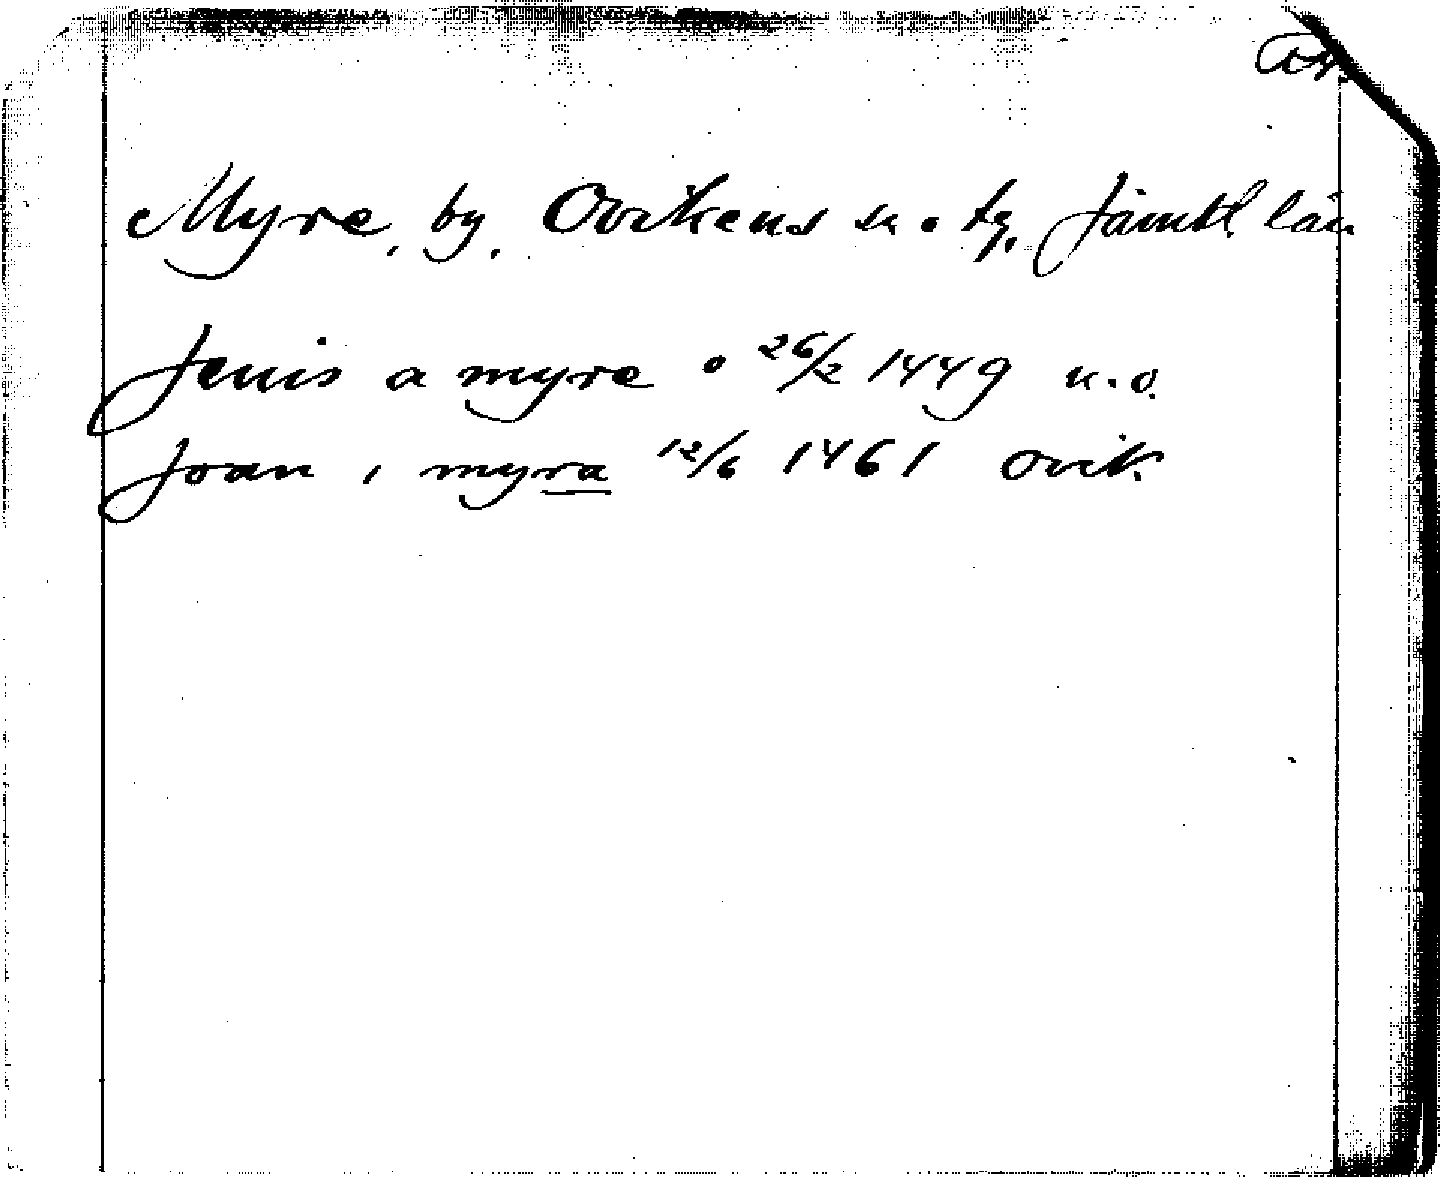 Myre, by. Ovikens sn o tg. Jämtl. län
Jenis a myre o 26/2 1449 u.o.
Joan i myra 12/6 1461 Ovik.